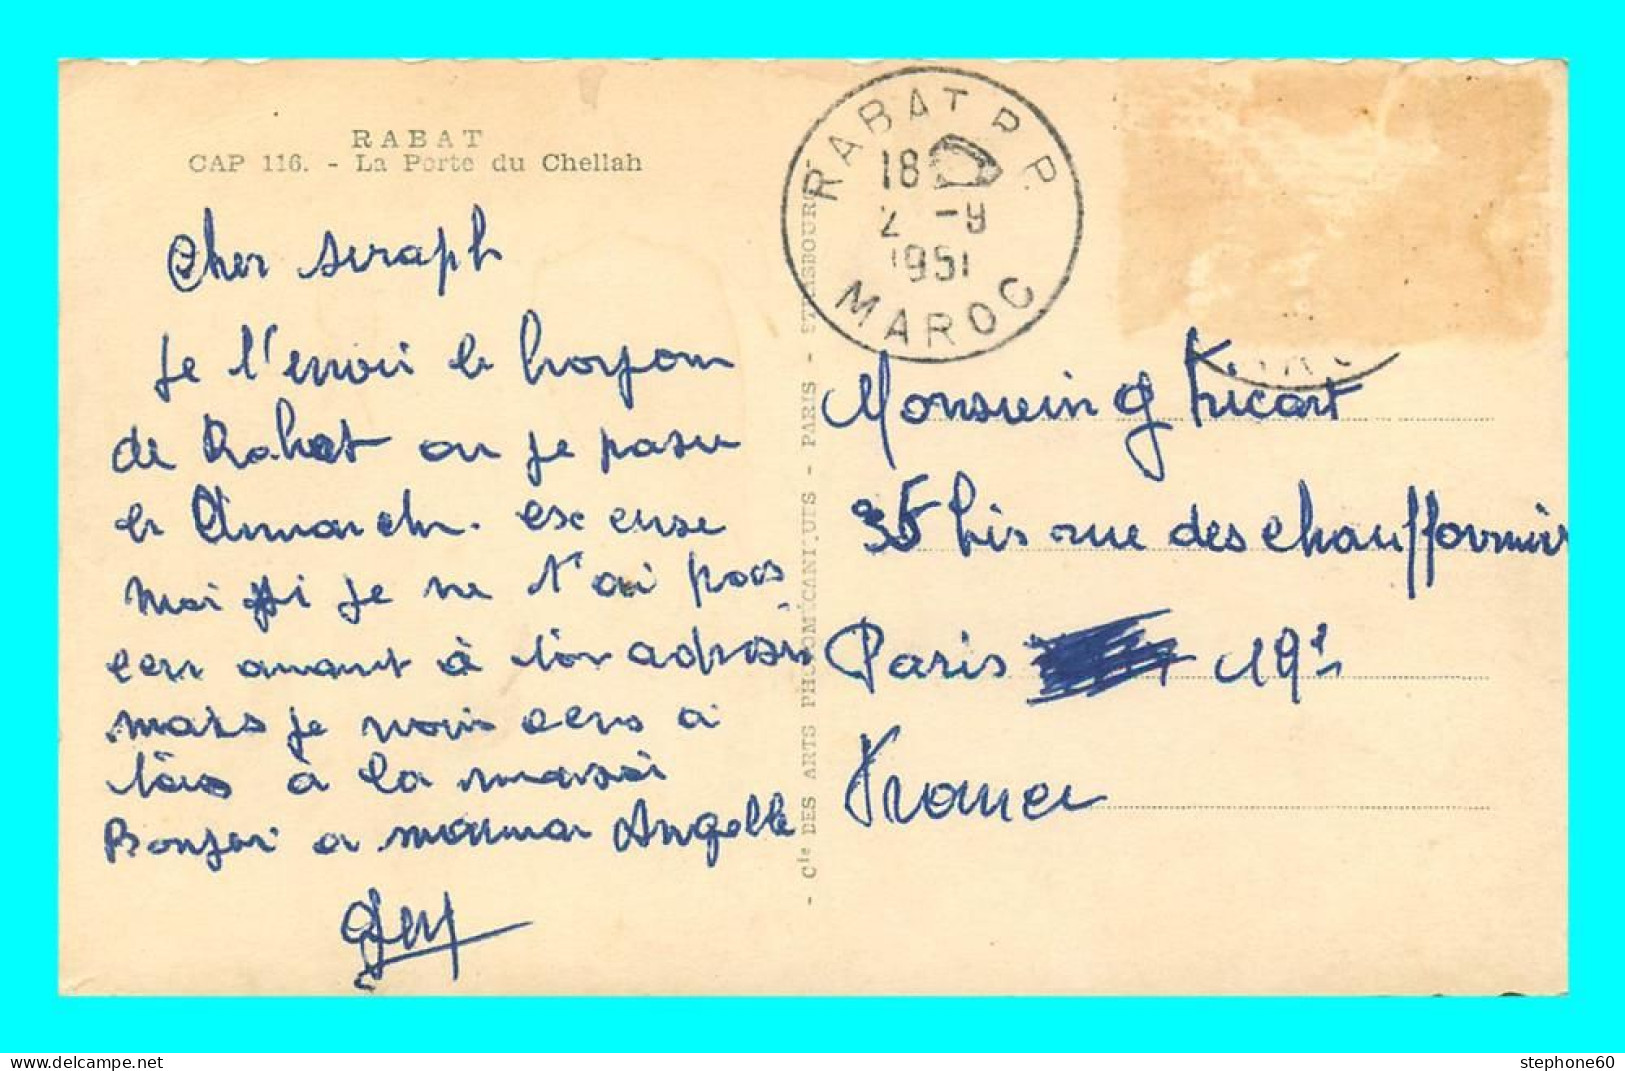 RABAT
CAP 116. - La Porte du Chellah
Cher seraph
Je l'envoi le
de Rabat ou je passe
le Dimanche. excuse
moi si je ne t'ai pas
avant à ton adresse
mais je
à la
Bonjour a maman Angelle
- Cie DES ARTS PHOTOMÉCANIQUES - PARIS - STRASBOURG -
RABAT R.P.
18
2 -9
1951
MAROC
Monsieur
35 bis rue des chauffourniers
Paris 19e
France
stephone60